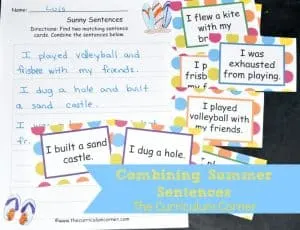 Name: Luis
Sunny Sentences
Directions: Find two matching sentence
cards. Combine the sentences below.
I played volleyball and
frisbee with my friends.
I dug a hole and built
a sand castle.
I
with
I flew a kite
with my
I was
exhausted
from playing.
I played
volleyball with
my friends.
I built a sand
castle.
I dug a hole.
Combining Summer
Sentences
The Curriculum Corner
www.thecurriculumcorner.com